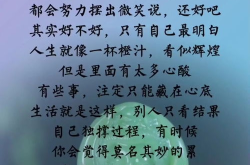 都会努力摆出微笑说，还好吧
其实好不好，只有自己最明白
人生就像一杯橙汁，看似辉煌
但是里面有太多心酸
有些事，注定只能藏在心底
生活就是这样，别人只看结果
自己独撑过程，有时候
你会觉得莫名其妙的累